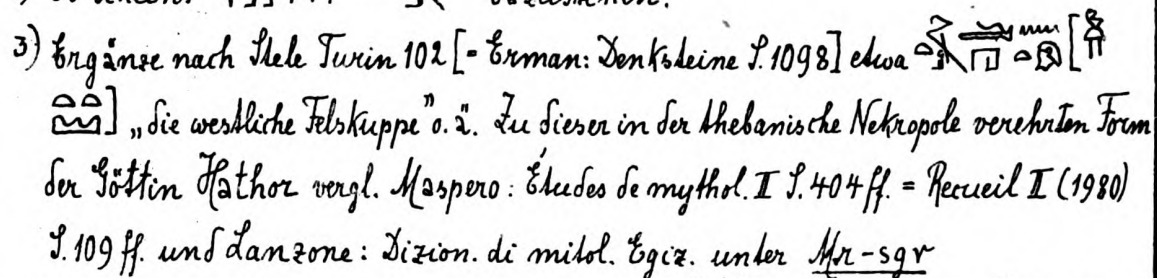 3) Ergänze nach Stele Turin 102 [= Erman: Denksteine S. 1098] etwa [
] „die westliche Felskuppe” o. ä. Zu dieser in der thebanische Nekropole verehrten Form
der Göttin Hathor vergl. Maspero: Études de mythol. II S. 404 ff. = Recueil II (1980)
S. 109 ff. und Lanzone: Dizion. di mitol. Egiz. unter Mr-sgr